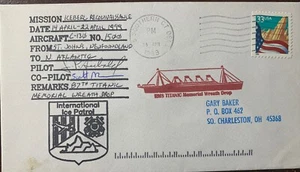 MISSION ICEBERG RECONNAISSANCE
DATE 14 APRIL - 22 APRIL 1999
AIRCRAFT C-130 No 1504
FROM ST. JOHN'S, NEWFOUNDLAND
TO N ATLANTIC
PILOT
CO-PILOT Scott M
REMARKS 87TH TITANIC
MEMORIAL WREATH DROP
PM
1999
33USA
RMS TITANIC Memorial Wreath Drop
International
Ice Patrol
GARY BAKER
P.O. BOX 462
SO. CHARLESTON, OH 45368